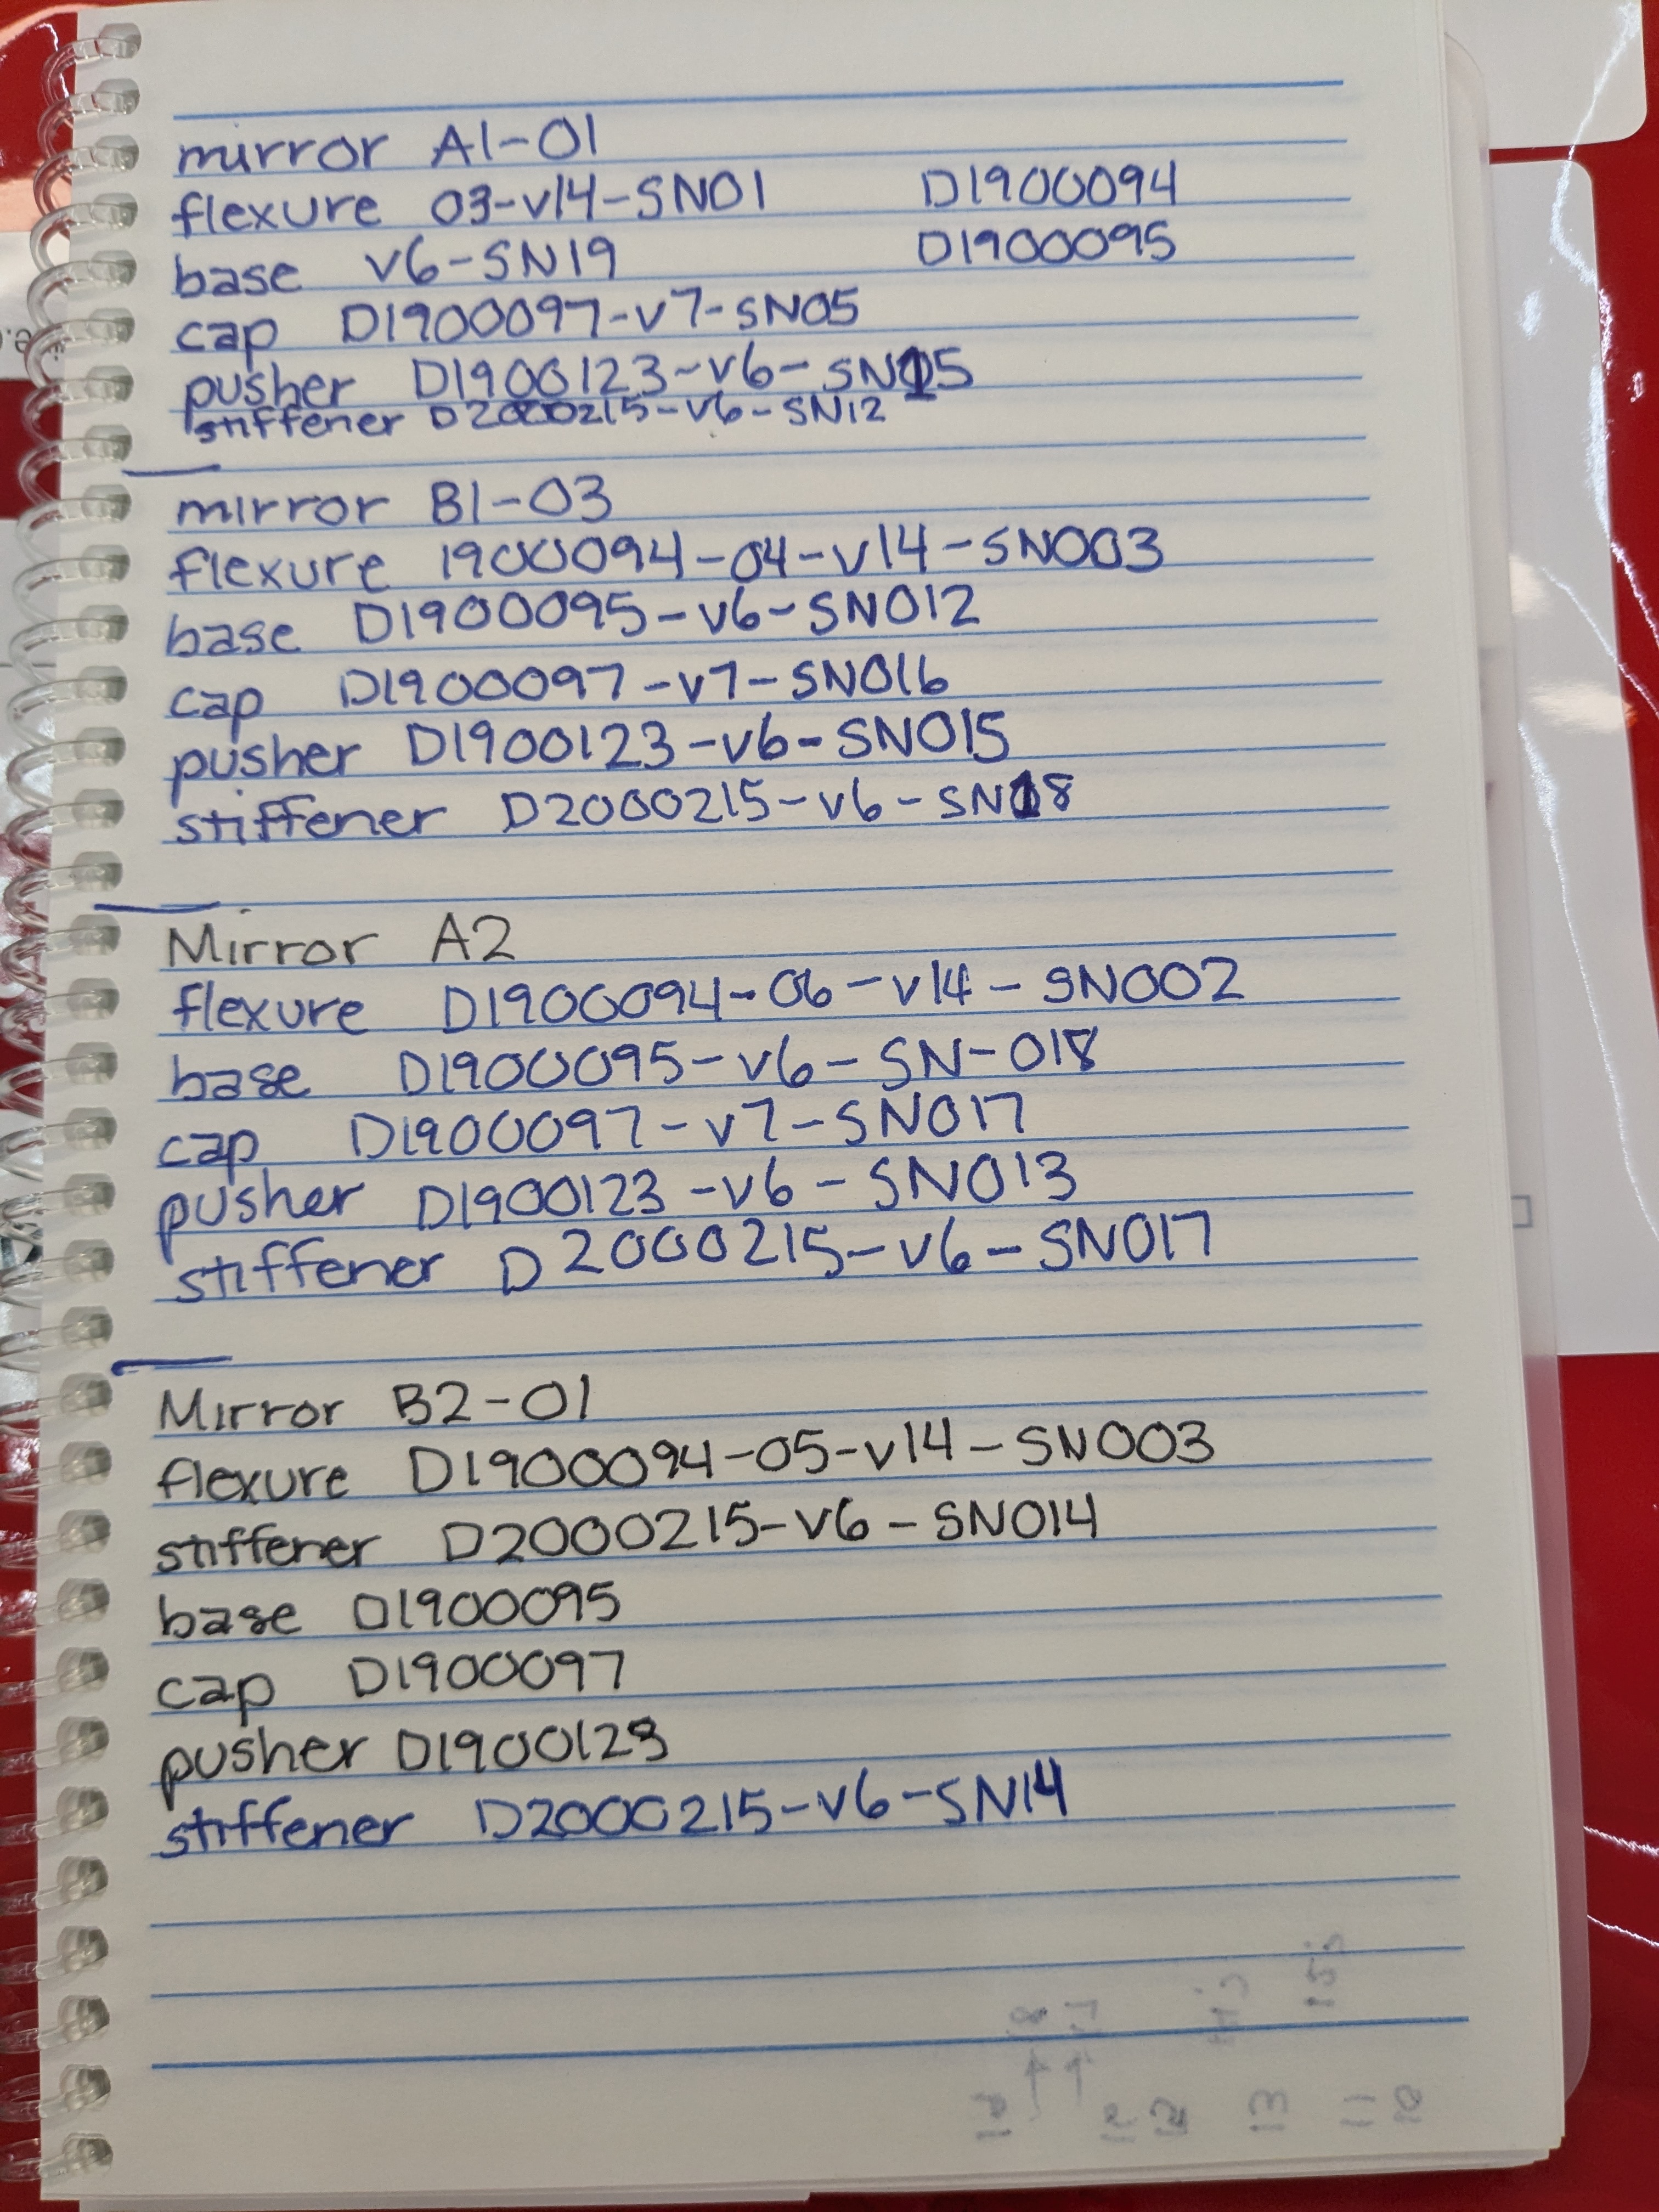 mirror A1-01
flexure 03-v14-SN01 D1900094
base v6-SN19 D1900095
cap D1900097-v7-SN05
pusher D1900123-v6-SN15
stiffener D2000215-v6-SN12
mirror B1-03
flexure 1900094-04-v14-SN003
base D1900095-v6-SN012
cap D1900097-v7-SN016
pusher D1900123-v6-SN015
stiffener D2000215-v6-SN18
Mirror A2
flexure D1900094-06-v14-SN002
base D1900095-v6-SN-018
cap D1900097-v7-SN017
pusher D1900123-v6-SN013
stiffener D2000215-v6-SN017
Mirror B2-01
flexure D1900094-05-v14-SN003
stiffener D2000215-v6-SN014
base D1900095
cap D1900097
pusher D1900123
stiffener D2000215-v6-SN14